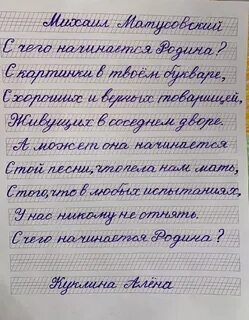 Михаил Матусовский
С чего начинается Родина?
С картинки в твоём букваре,
С хороших и верных товарищей,
Живущих в соседнем дворе.
А может она начинается
С той песни, что пела нам мать,
С того, что в любых испытаниях,
У нас никому не отнять.
С чего начинается Родина?
Куклина Алёна